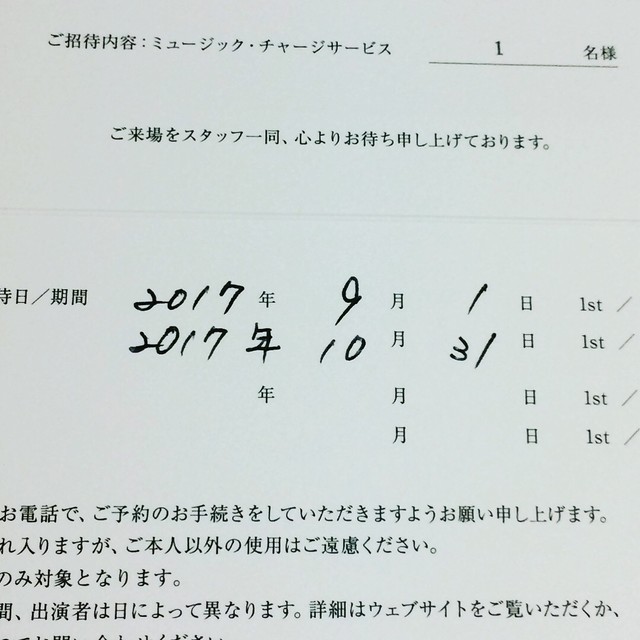 ご招待内容：ミュージック・チャージサービス 1 名様
ご来場をスタッフ一同、心よりお待ち申し上げております。
待日／期間 2017 年 9 月 1 日 1st ／
2017 年 10 月 31 日 1st ／
年 月 日 1st ／
月 日 1st ／
お電話で、ご予約のお手続きをしていただきますようお願い申し上げます。
れ入りますが、ご本人以外の使用はご遠慮ください。
のみ対象となります。
間、出演者は日によって異なります。詳細はウェブサイトをご覧いただくか、